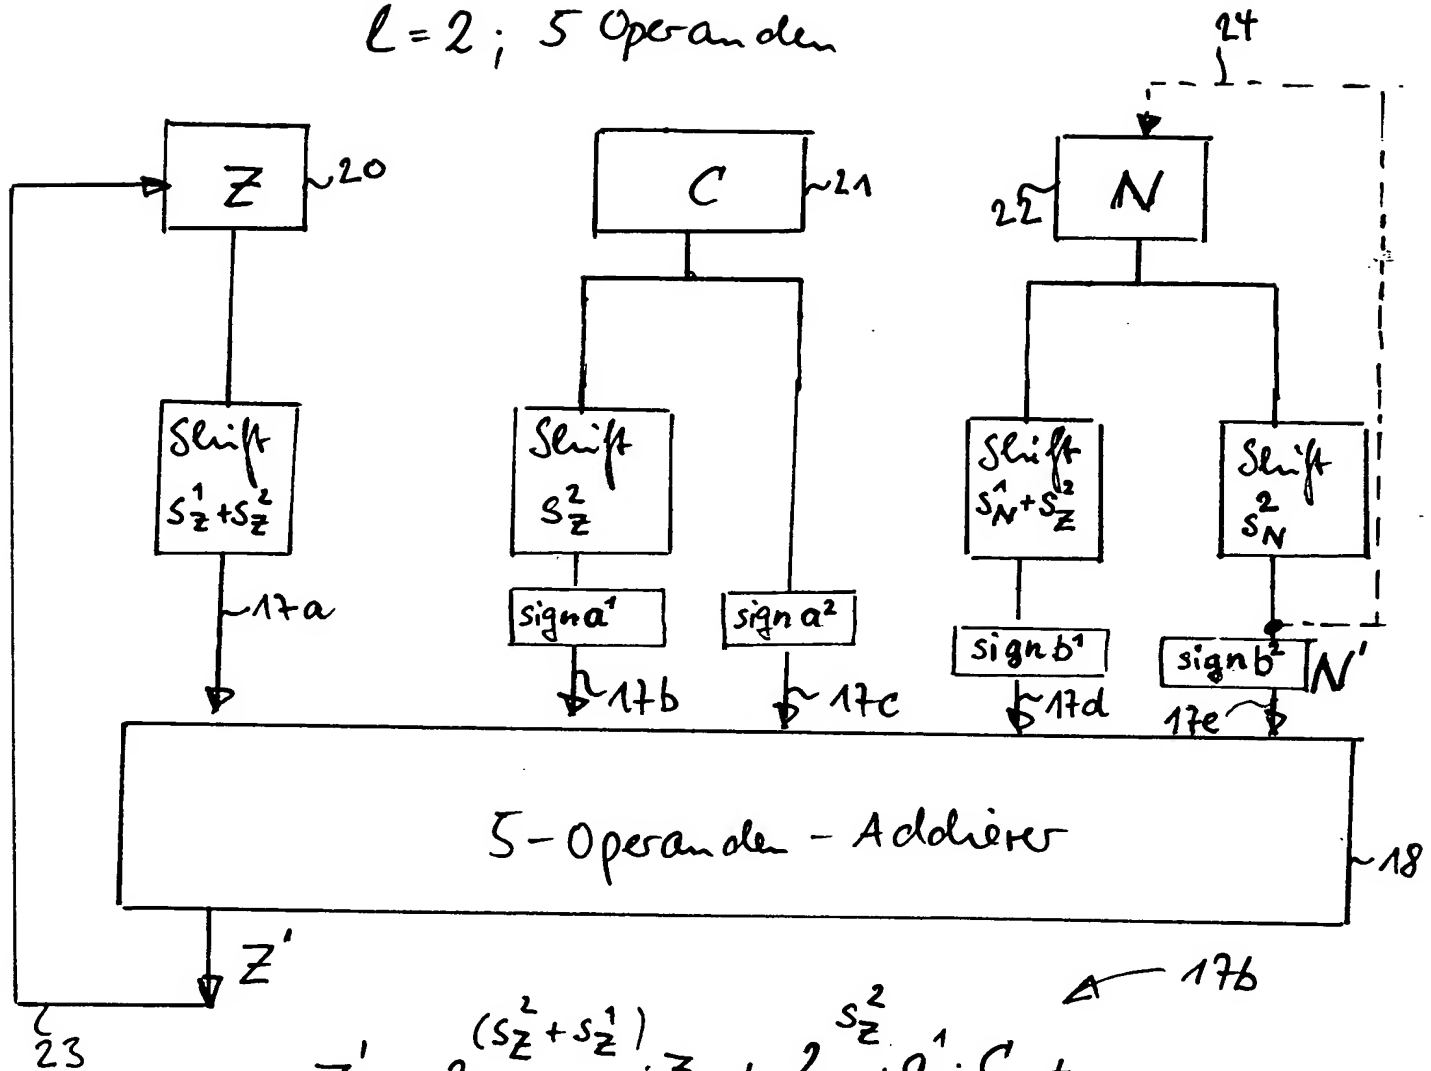 l = 2 ; 5 Operanden
24
Z
20
C
21
22
N
Shift
S_Z^1 + S_Z^2
Shift
S_Z^2
Shift
S_N^1 + S_Z^2
Shift
S_N^2
17a
sign a^1
sign a^2
sign b^1
sign b^2
N'
17b
17c
17d
17e
5-Operanden-Addierer
18
Z'
17b
23
(S_Z^2 + S_Z^1)
S_Z^2